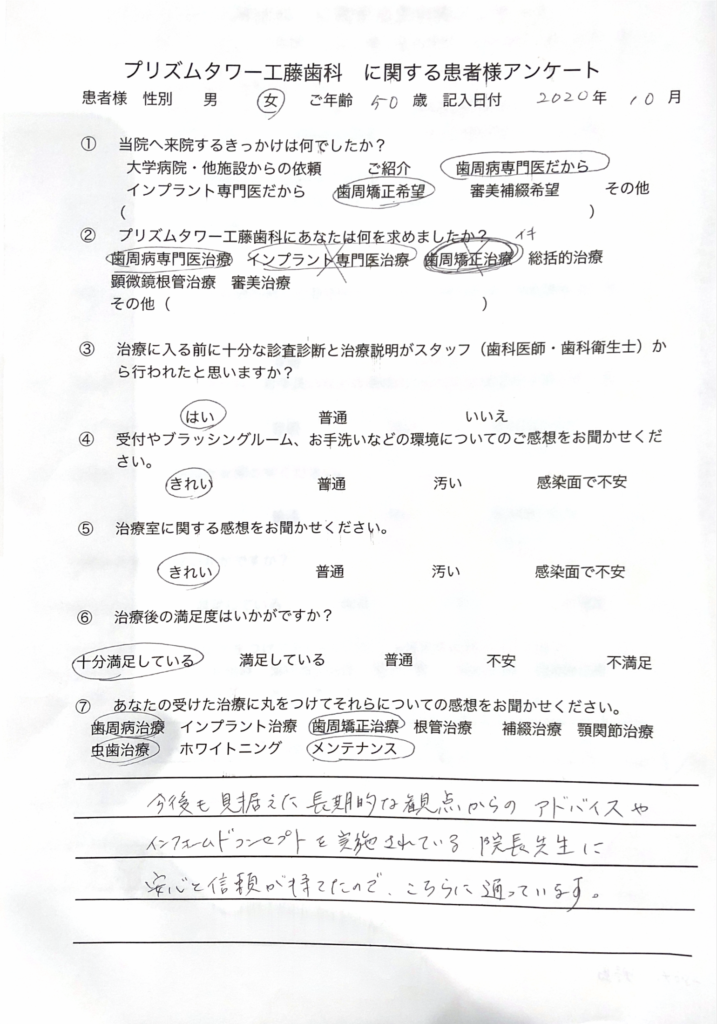 プリズムタワー工藤歯科　に関する患者様アンケート
患者様　性別　男　女　ご年齢 50 歳　記入日付　2020年　10月
①　当院へ来院するきっかけは何でしたか？
大学病院・他施設からの依頼　ご紹介　歯周病専門医だから
インプラント専門医だから　歯周矯正希望　審美補綴希望　その他
(　)
②　プリズムタワー工藤歯科にあなたは何を求めましたか？　イキ
歯周病専門医治療　インプラント専門医治療　歯周矯正治療　総括的治療
顕微鏡根管治療　審美治療
その他（　）
③　治療に入る前に十分な診査診断と治療説明がスタッフ（歯科医師・歯科衛生士）か
ら行われたと思いますか？
はい　普通　いいえ
④　受付やブラッシングルーム、お手洗いなどの環境についてのご感想をお聞かせくだ
さい。
きれい　普通　汚い　感染面で不安
⑤　治療室に関する感想をお聞かせください。
きれい　普通　汚い　感染面で不安
⑥　治療後の満足度はいかがですか？
十分満足している　満足している　普通　不安　不満足
⑦　あなたの受けた治療に丸をつけてそれらについての感想をお聞かせください。
歯周病治療　インプラント治療　歯周矯正治療　根管治療　補綴治療　顎関節治療
虫歯治療　ホワイトニング　メンテナンス
今後も見据えた長期的な観点からのアドバイスや
インフォームドコンセプトを実施されている院長先生に
安心と信頼が持てたので、こちらに通っています。